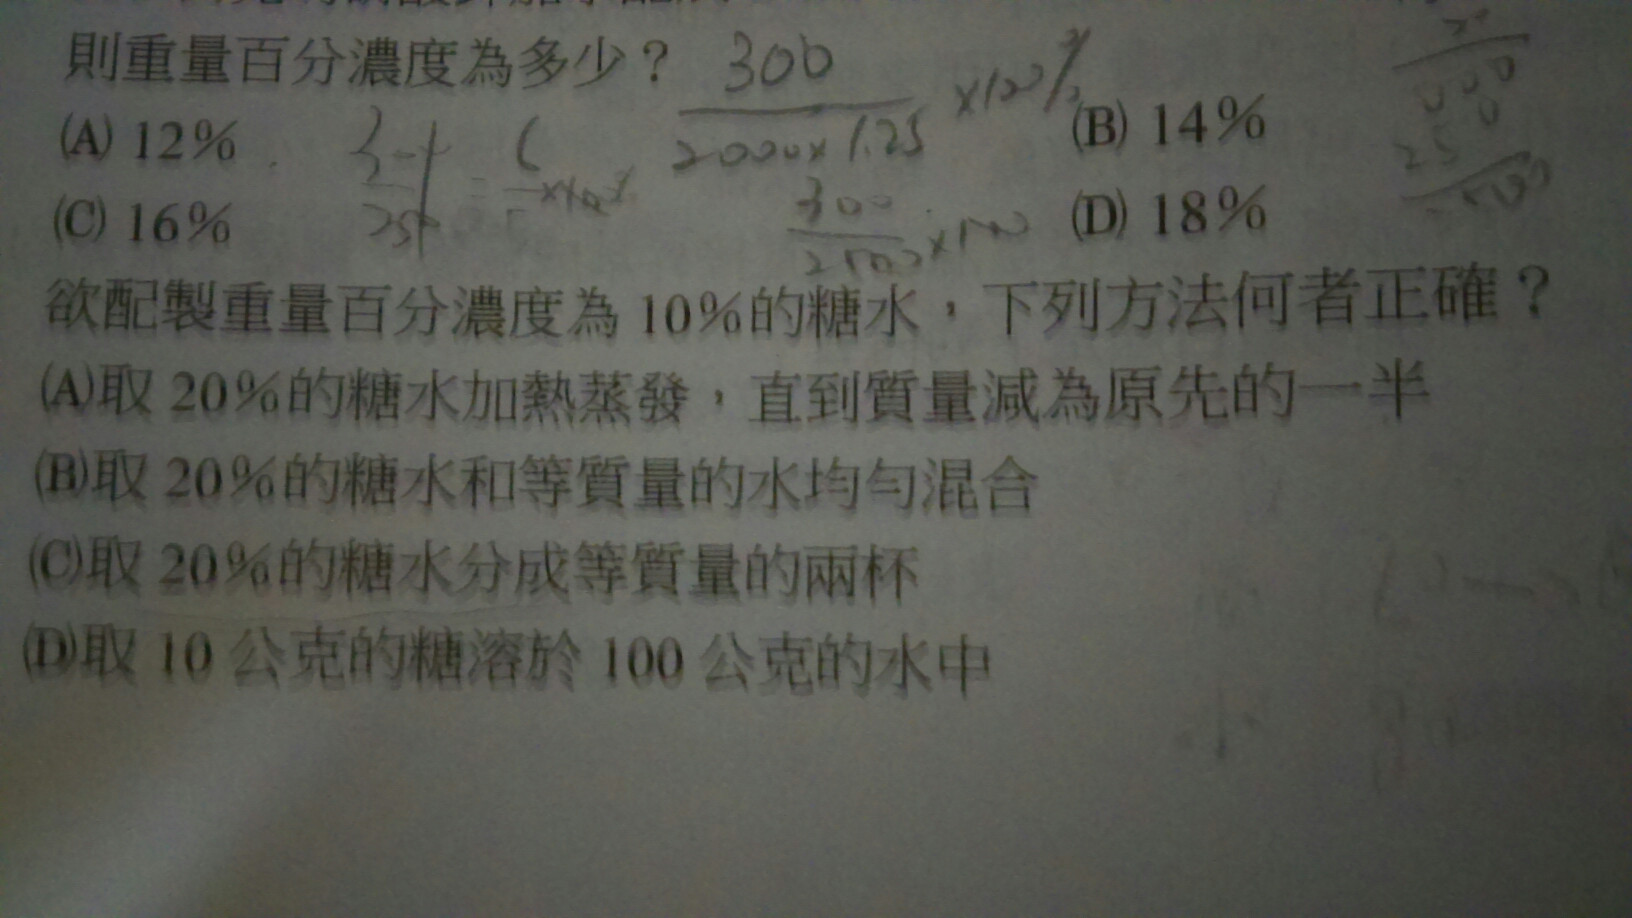 則重量百分濃度為多少？ 300
2000×1.25 ×100%
(A) 12% (B) 14%
300
(C) 16% (D) 18%
欲配製重量百分濃度為 10%的糖水，下列方法何者正確？
(A)取 20%的糖水加熱蒸發，直到質量減為原先的一半
(B)取 20%的糖水和等質量的水均勻混合
(C)取 20%的糖水分成等質量的兩杯
(D)取 10 公克的糖溶於 100 公克的水中